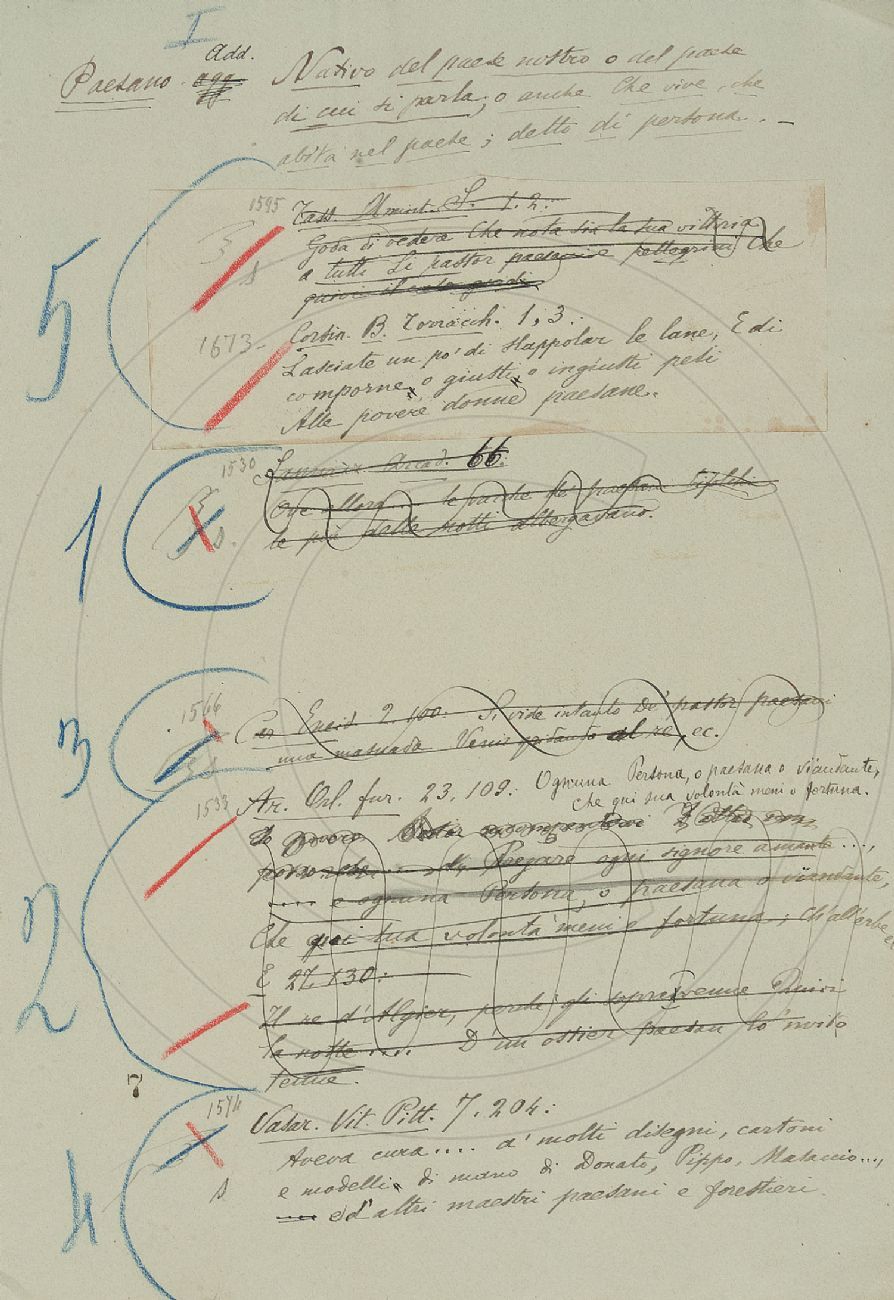 I
Add.
Paesano agg Nativo del paese nostro o del paese
di cui si parla; o anche Che vive, che
abita nel paese; detto di persona. –
5
1595 Tass. Amint. 1. 2:
s Goda di vedere che nota sia la sua vittoria
a tutti Li pastor paesani e pellegrini Che
quivi
1673 – Corsin. B. Torracch. 1, 3:
Lasciate un po' di stappolar le lane, E di
comporne, o giusti, o ingiusti pesi
Alle povere donne paesane.
1
1530 Sannazz. Arcad. 66:
s. Ove allora.... le vacche de' paesani
le più delle notti albergavano.
3
1566 Car. Eneid. 2. 100: Si vide intanto De' pastor paesani
s una masnada Venir al re, ec.
2
1532 Ar. Orl. fur. 23, 109: Ognuna Persona, o paesana o viandante,
Che qui sua volontà meni o fortuna.
Pregare ogni signore amante ...,
.... e ognuna Persona, o paesana o viandante,
Che qui sua volontà meni o fortuna; Ch'all'erbe ec
E 27, 130:
Il re d'Algier, perchè gli sopravvenne Quivi
la notte .... D'un ostier paesan lo 'nvito
tenne.
7
4
1574 Vasar. Vit. Pitt. 7. 204:
Aveva cura.... a' molti disegni, cartoni
s e modelli di mano di Donato, Pippo, Masaccio...,
ed altri maestri paesani e forestieri.